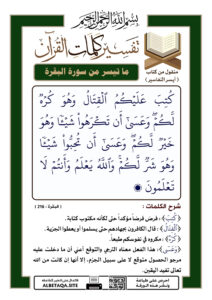 بسم الله الرحمن الرحيم
تفسير كلمات القرآن
منقول من كتاب
( أيسر التفاسير )
ما تيسر من سورة البقرة
كُتِبَ عَلَيْكُمُ ٱلْقِتَالُ وَهُوَ كُرْهٌ
لَّكُمْ وَعَسَىٰٓ أَن تَكْرَهُوا۟ شَيْـًٔا وَهُوَ
خَيْرٌ لَّكُمْ وَعَسَىٰٓ أَن تُحِبُّوا۟ شَيْـًٔا
وَهُوَ شَرٌّ لَّكُمْ وَٱللَّهُ يَعْلَمُ وَأَنتُمْ لَا
تَعْلَمُونَ
( البقرة - 216 )
شرح الكلمات :
﴿كُتِبَ﴾ : فرض فرضاً مؤكداً حتى لكأنه مكتوب كتابة.
﴿الْقِتَالُ﴾ : قتال الكافرون بجهادهم حتى يسلموا أو يعطوا الجزية.
﴿كُرْهٌ﴾ : مكروه في نفوسكم طبعاً.
﴿وَعَسَى﴾ : هذا الفعل معناه الترجي والتوقع أعني أن ما دخلت عليه
مرجو الحصول متوقع لا على سبيل الجزم، إلا أنها إن كانت من الله
تعالى تفيد اليقين.
ALBETAQA.SITE